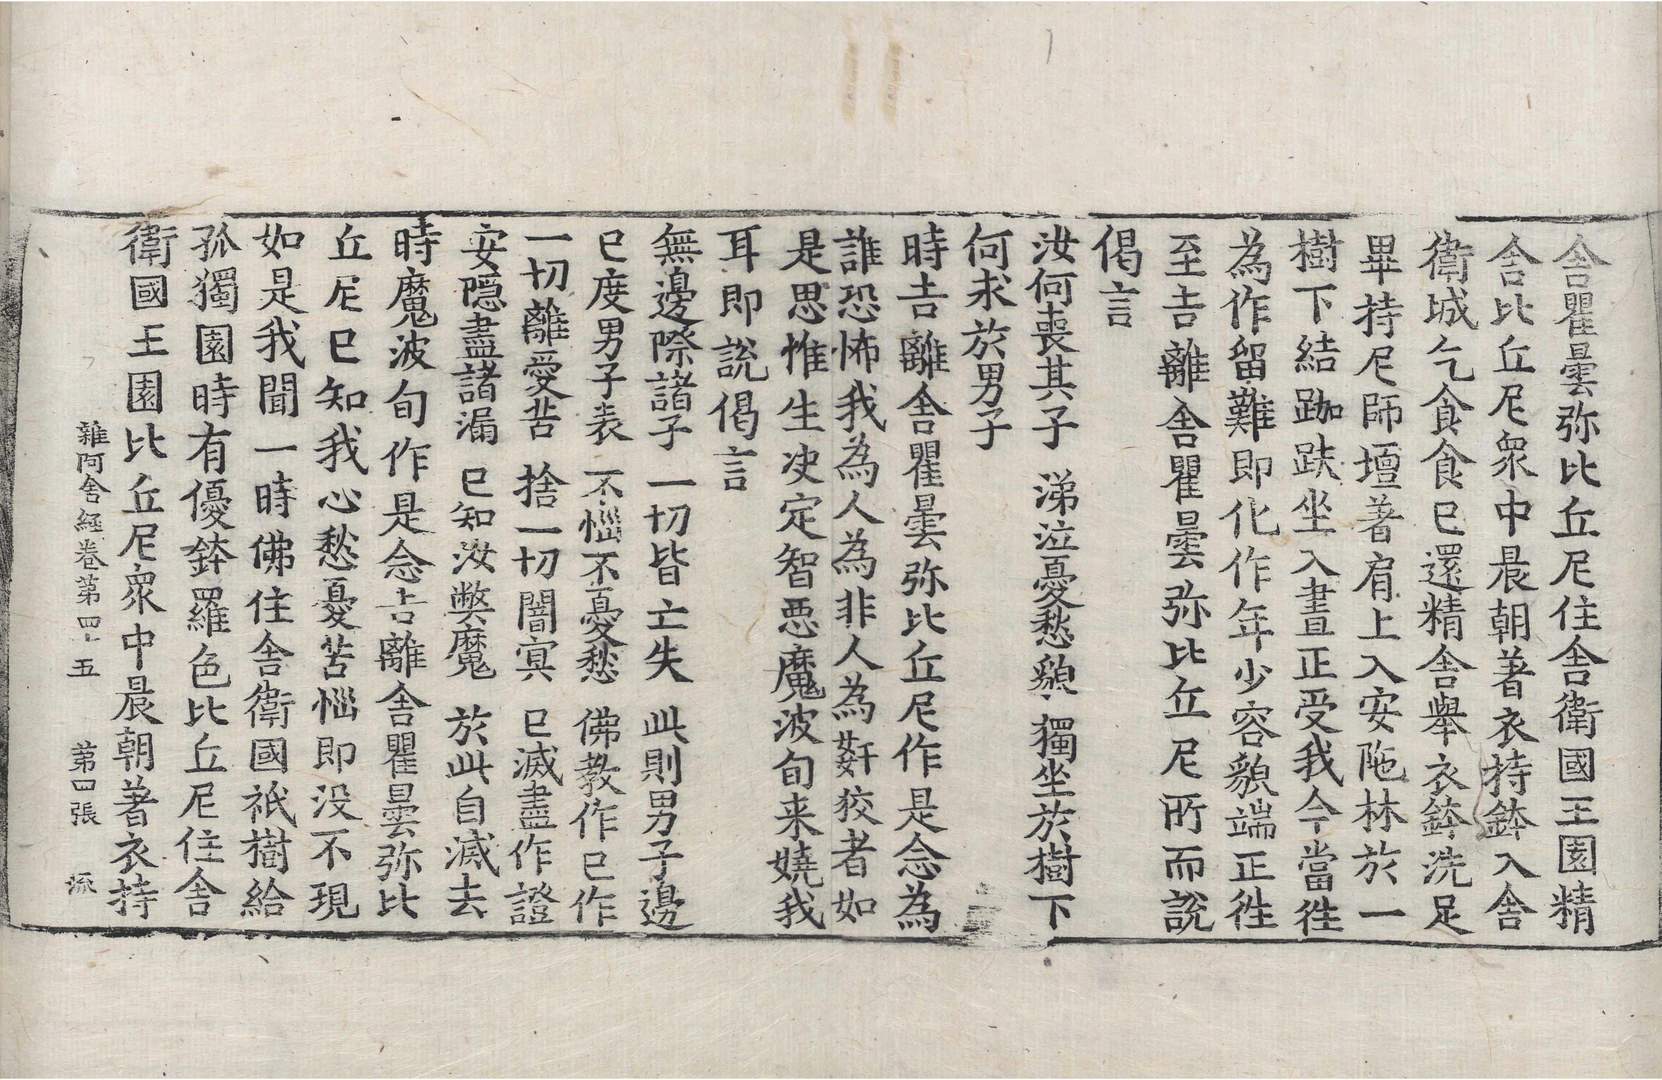 舎瞿曇弥比丘尼住舎衛國王園精
舎比丘尼衆中晨朝著衣持鉢入舎
衛城乞食食已還精舎舉衣鉢洗足
畢持尼師壇著肩上入安陁林於一
樹下結跏趺坐入晝正受我今當往
為作留難即化作年少容貌端正徃
至吉離舎瞿曇弥比丘尼所而說
偈言
汝何喪其子　涕泣憂愁貌　獨坐於樹下
何求於男子
時吉離舎瞿曇弥比丘尼作是念為
誰恐怖我為人為非人為姧狡者如
是思惟生决定智惡魔波旬来嬈我
耳即說偈言
無邊際諸子　一切皆亡失　此則男子邊
已度男子表　不惱不憂愁　佛教作已作
一切離愛苦　捨一切闇冥　已滅盡作證
安隱盡諸漏　已知汝弊魔　於此自滅去
時魔波旬作是念吉離舎瞿曇弥比
丘尼已知我心愁憂苦惱即没不現
如是我聞一時佛住舎衛國祇樹給
孤獨園時有優鉢羅色比丘尼住舎
衛國王園比丘尼衆中晨朝著衣持
雜阿含經卷第四十五　第四張　流